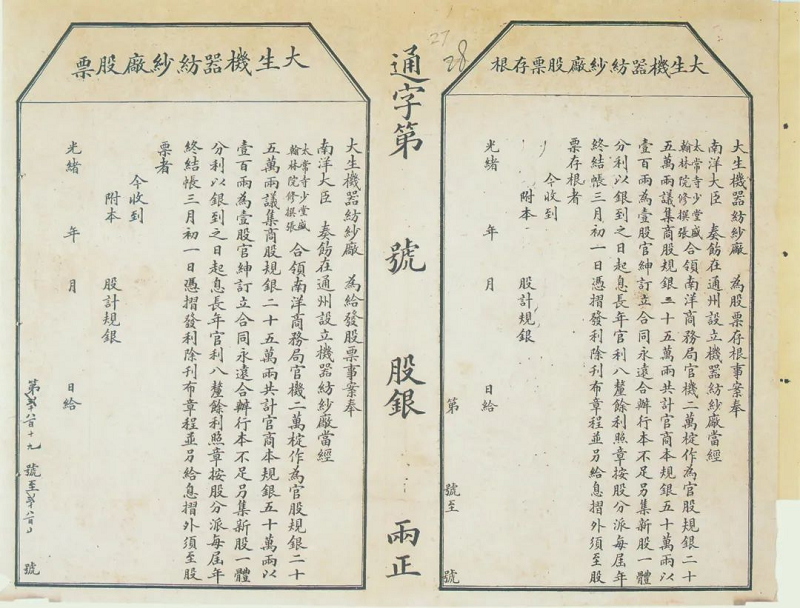 27
28
大生機器紡紗廠股票存根
大生機器紡紗廠 為股票存根事案奉
南洋大臣 奏飭在通州設立機器紡紗廠當經
太常寺少堂盛
翰林院修撰張
合領南洋商務局官機二萬梃作為官股規銀二十
五萬兩議集商股規銀二十五萬兩共計官商本規銀五十萬兩以
壹百兩為壹股官紳訂立合同永遠合辦行本不足另集新股一體
分利以銀到之日起息長年官利八釐餘利照章按股分派每屆年
終結帳三月初一日憑摺發利除刊布章程並另給息摺外須至股
票存根者
今收到
附本 股計規銀
光緒 年 月 日給
第 號至 號
通字第 號 股銀 兩正
大生機器紡紗廠股票
大生機器紡紗廠 為給發股票事案奉
南洋大臣 奏飭在通州設立機器紡紗廠當經
太常寺少堂盛
翰林院修撰張
合領南洋商務局官機二萬梃作為官股規銀二十
五萬兩議集商股規銀二十五萬兩共計官商本規銀五十萬兩以
壹百兩為壹股官紳訂立合同永遠合辦行本不足另集新股一體
分利以銀到之日起息長年官利八釐餘利照章按股分派每屆年
終結帳三月初一日憑摺發利除刊布章程並另給息摺外須至股
票者
今收到
附本 股計規銀
光緒 年 月 日給
第 號至 號